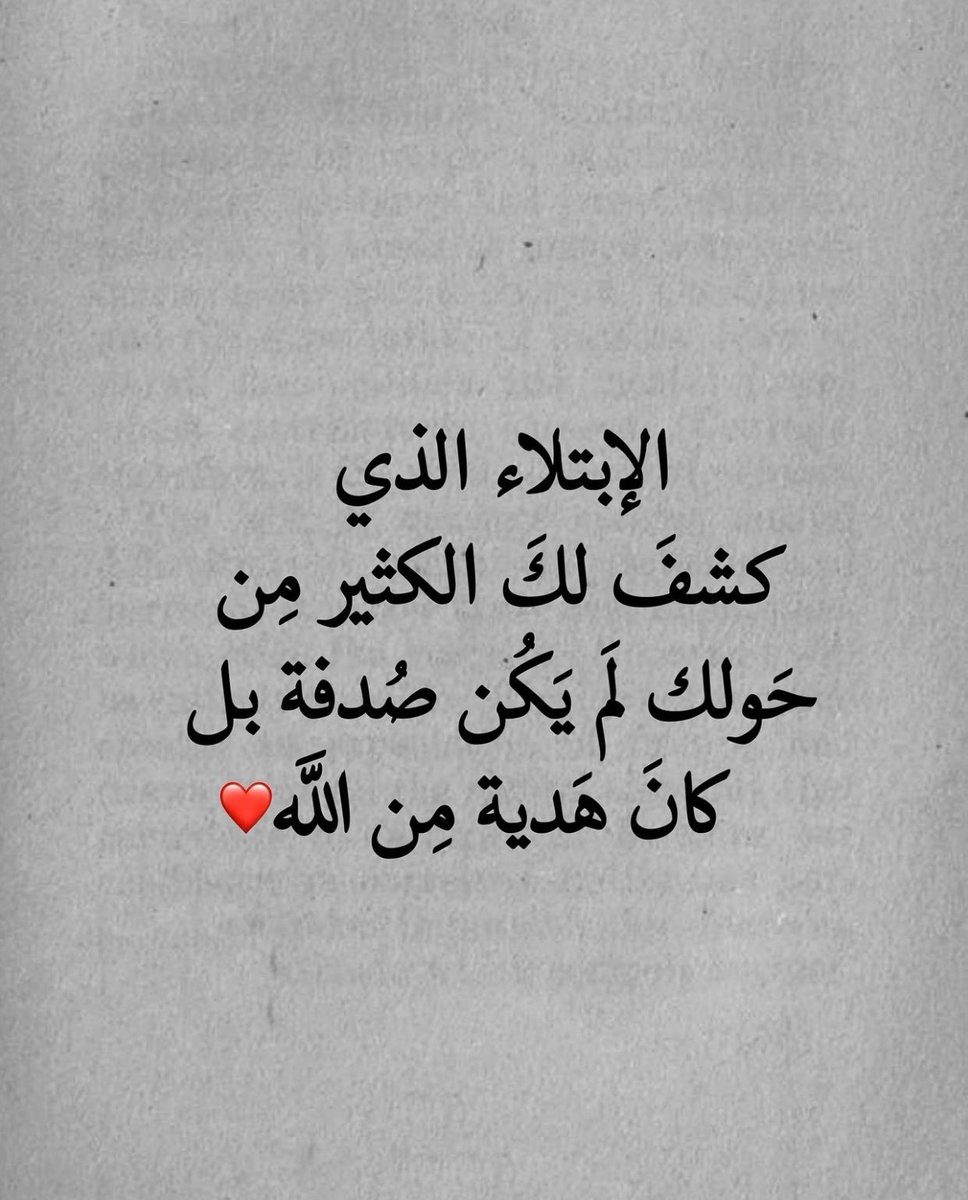 الإبتلاء الذي
كشفَ لكَ الكثير مِن
حَولك لَم يَكُن صُدفة بل
كانَ هَدية مِن اللَّه❤️